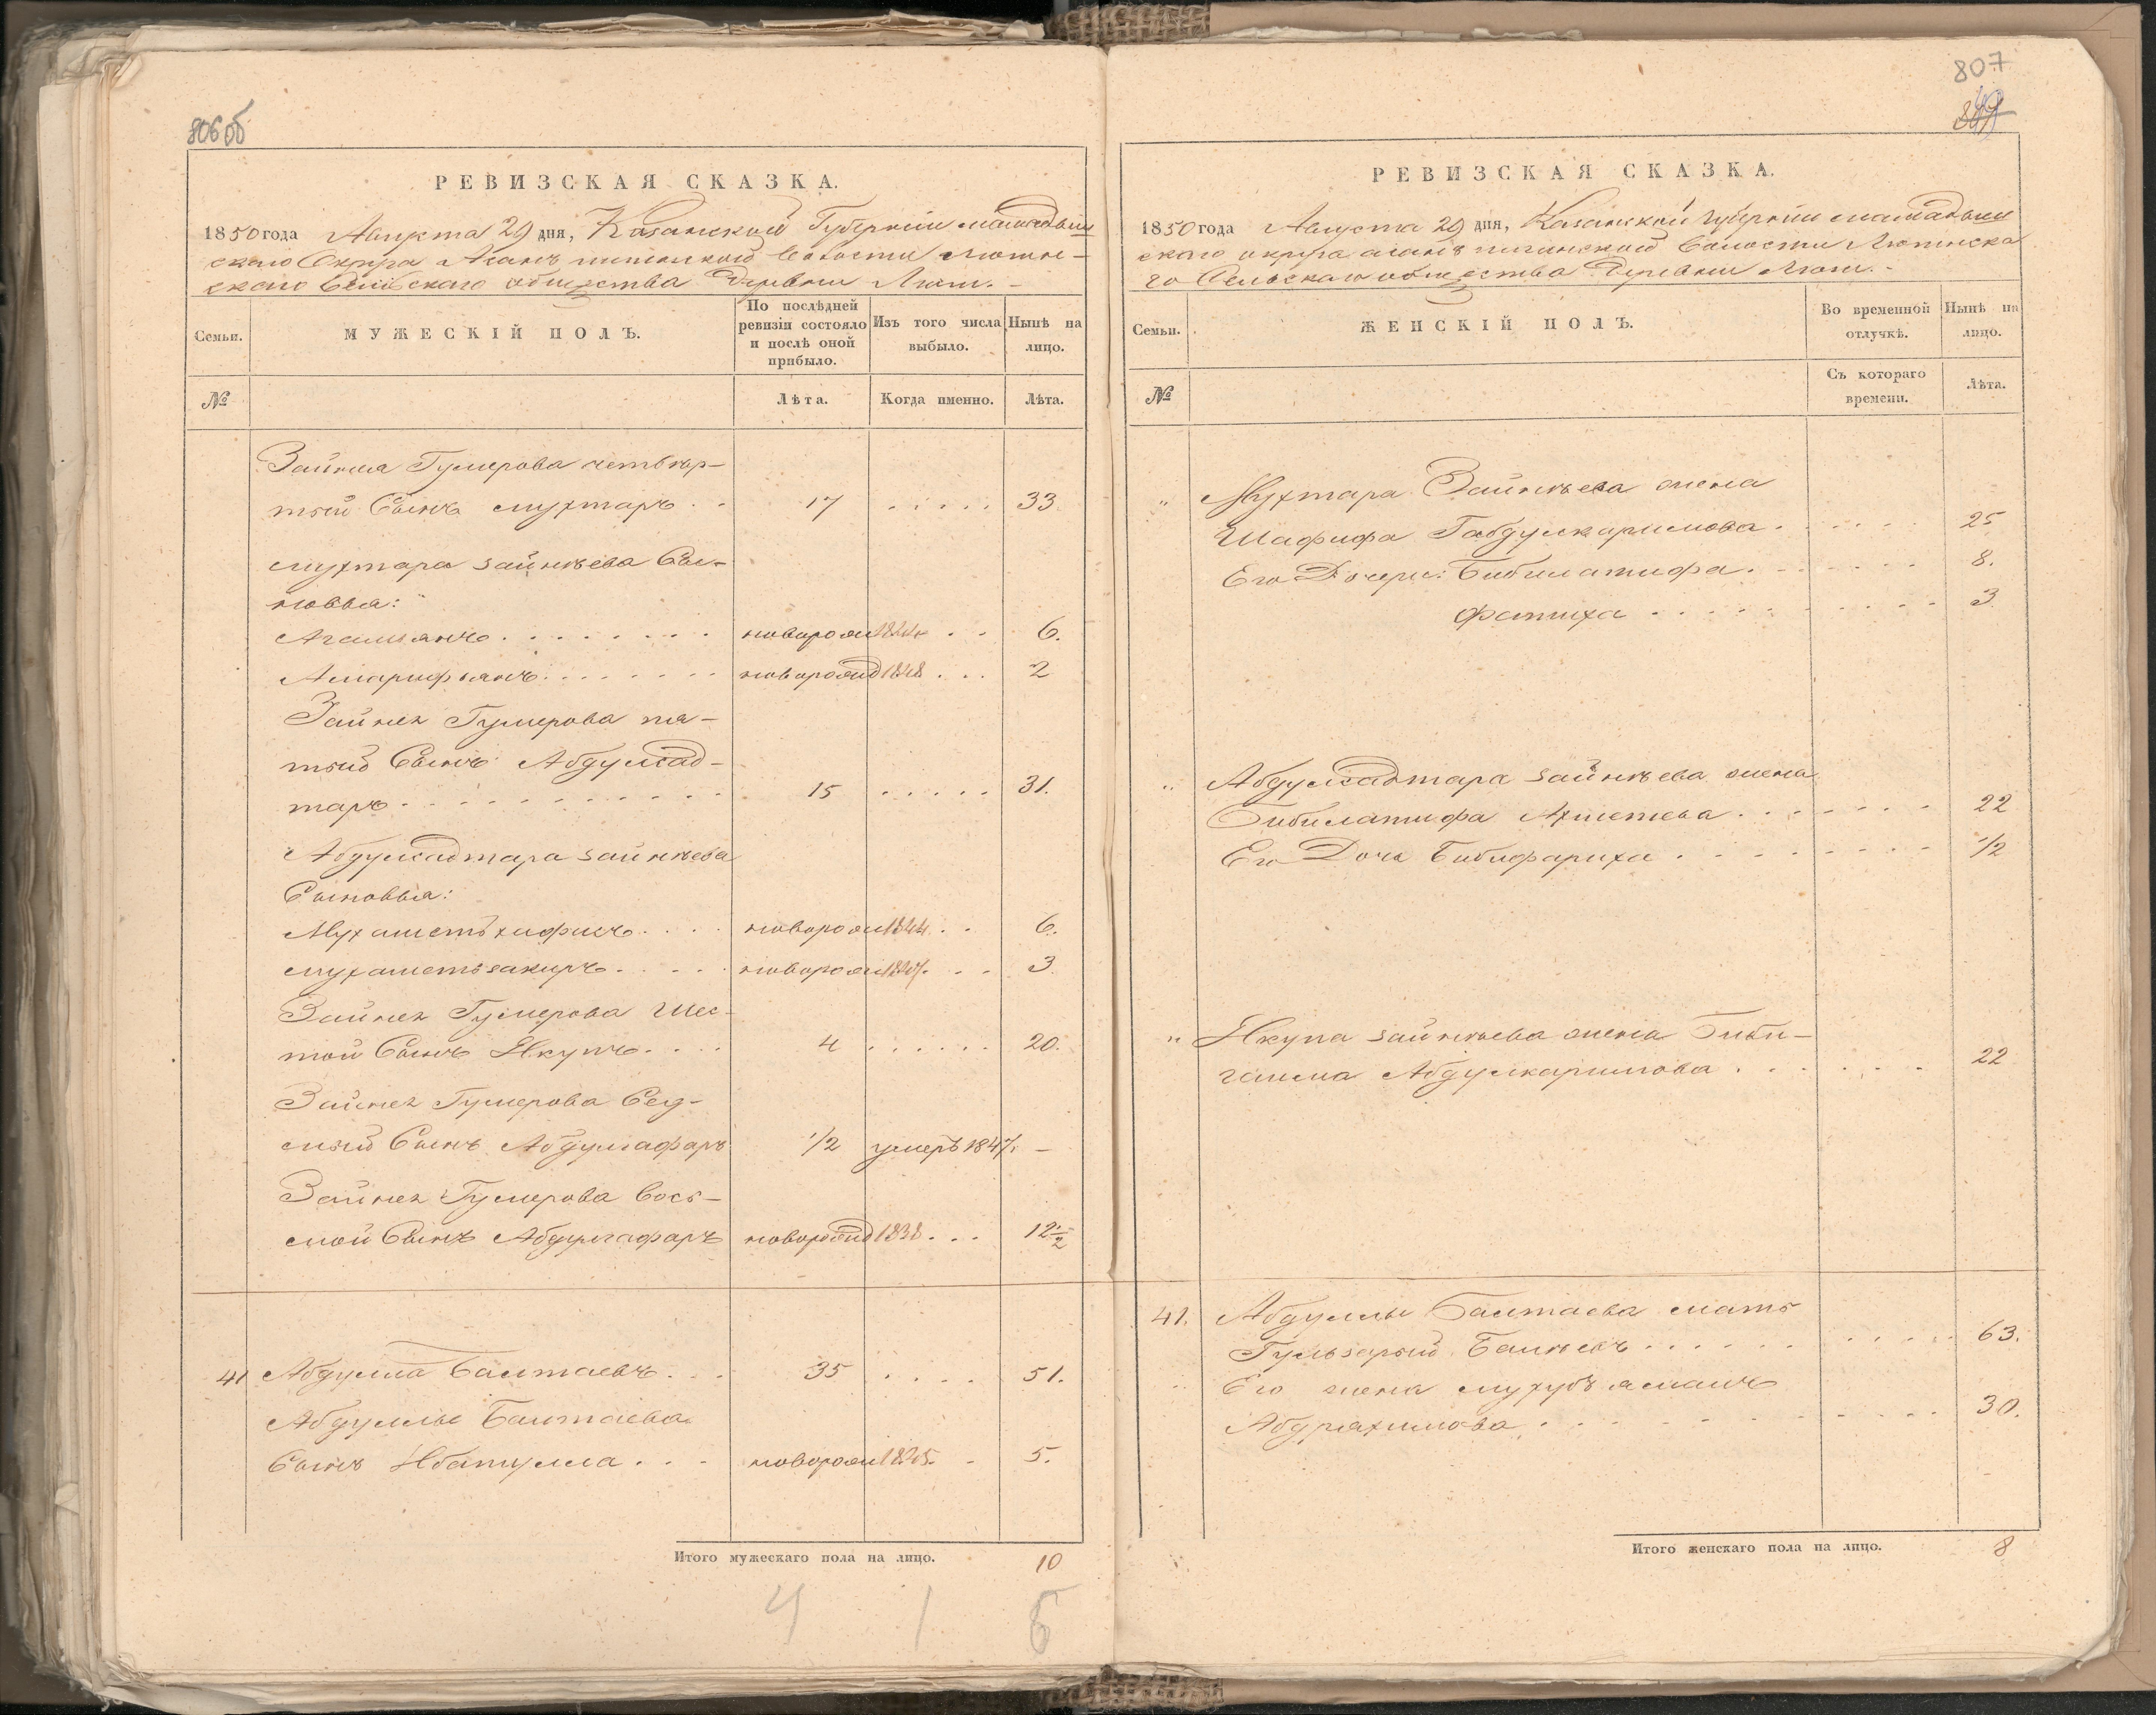 806об
РЕВИЗСКАЯ СКАЗКА.
1850 года Августа 29 дня, Казанской Губернии мамадыш
скаго Округа Асанъ Волости Лютин-
скаго Сельскаго общества Деревни Люти.
Семьи.
МУЖЕСКІЙ ПОЛЪ.
По послѣдней ревизіи состояло и послѣ оной прибыло.
Изъ того числа выбыло.
Нынѣ на лицо.
№
Лѣта.
Когда именно.
Лѣта.
Зайнея Гумерова четвер-
тый Сынъ мухтаръ . . 17 . . . . . 33.
мухтара зайнѣева Сы-
новья:
Агальянъ . . . . . . . . новорож 1844 . . 6.
Амарифъянъ . . . . . . . новорожд 1848 . . . 2
Зайнея Гумерова пя-
тый Сынъ Абдулсад-
таръ . . . . . . . . . . . 15 . . . . . 31.
Абдулсадтара зайнѣева
Сыновья:
Мухаметъхафизъ . . . . новорож 1844 . . 6.
мухаметьзакиръ . . . . . новорож 1847. . . 3.
Зайнея Гумерова Шес-
той Сынъ Якупъ . . . . 4 . . . . . . 20.
Зайнея Гумерова Сед-
мый Сынъ Абдулгафаръ 1/2 умеръ 1847. —
Зайнея Гумерова Вось-
мой Сынъ Абдулгафаръ новорожд 1838 . . . 12 1/2
41 Абдулла Балтаевъ . . . 35 . . . . 51.
Абдуллы Балтаева
Сынъ Ибатулла . . . новорож 1845. . 5.
Итого мужескаго пола на лицо. 10
4 1 5
807
РЕВИЗСКАЯ СКАЗКА.
1850 года Августа 29 дня, Казанской Губернии мамадыш
скаго округа асанъ Волости Лютинска
го Сельскаго общества Деревни Люти. -
Семьи.
ЖЕНСКІЙ ПОЛЪ.
Во временной отлучкѣ.
Нынѣ на лицо.
№
Съ котораго времени.
Лѣта.
" Мухтара Зайнѣева жена
Шафифа Габдулкаримова . . . . . 25
Его Дочери: Бибилатифа . . . . . . . 8.
Фатиха . . . . . . . . . . 3
" Абдулсадтара зайнѣева жена
Бибилатифа Ахметева . . . . . . . 22
Его Дочь Бибифариха . . . . . . . . 1/2
" Якупа зайнѣева жена Биби-
галима Абдулкаримова . . . . . . 22
41. Абдуллы Балтаева мать
. . . . . . . . . . 63.
Его жена
Абдрахимова . . . . . . . . . . 30.
Итого женскаго пола на лицо. 8